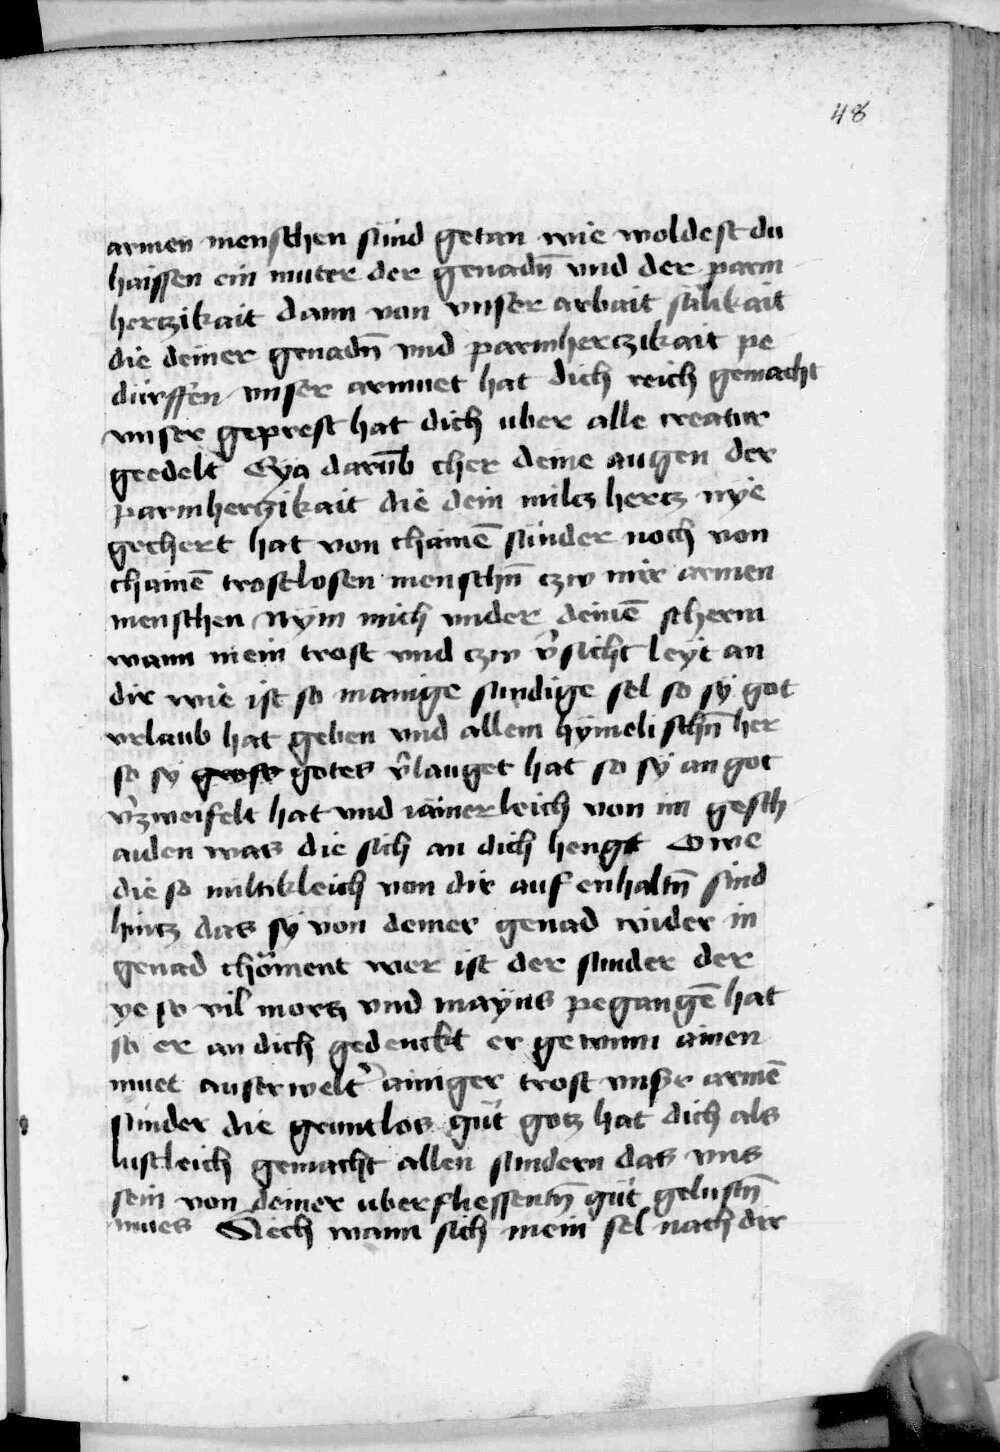 48
armen menschen sünd getan wie woldest du
haissen ein muter der genadn̄ vnd der parm
hertzikait dann von vnser arbait sälikait
die deiner genadn̄ vnd parmhertzikait pe
dürffen vnser armuet hat dich reich gemacht
vnser geprest hat dich uber alle creatur
geedelt Eya darūb cher deine augen der
parmhertzikait die dein miltz hertz nye
gechert hat von chainē sünder noch von
chainē trostlosen menschn̄ czw mir armen
menschen Nym mich vnder deinē scherm
wann mein trost vnd czw v̄sicht leyt an
dir wie ist so manige sundige sel so sy got
vrlaub hat geben vnd allem hymelischn̄ her
so sy gotes v̄lauget hat so sy an got
v̄zweifelt hat vnd iämerleich von im gesch
aiden was die sich an dich hengt O we
die so miltikleich von dir auf enhaltn̄ sind
hintz das sy von deiner genad wider in
genad chöment wer ist der sunder der
ye so vil mortz vnd mayns pegangē hat
so er an dich gedenckt er gewunn ainen
muet auserwelt̄ ainiger trost vnser armē
sünder die gruntlos güt gotz hat dich als
lustleich gemacht allen sundern das vns
sein von deiner uberfliessentn̄ güt gelustn̄
mues Siech wann sich mein sel nach dir